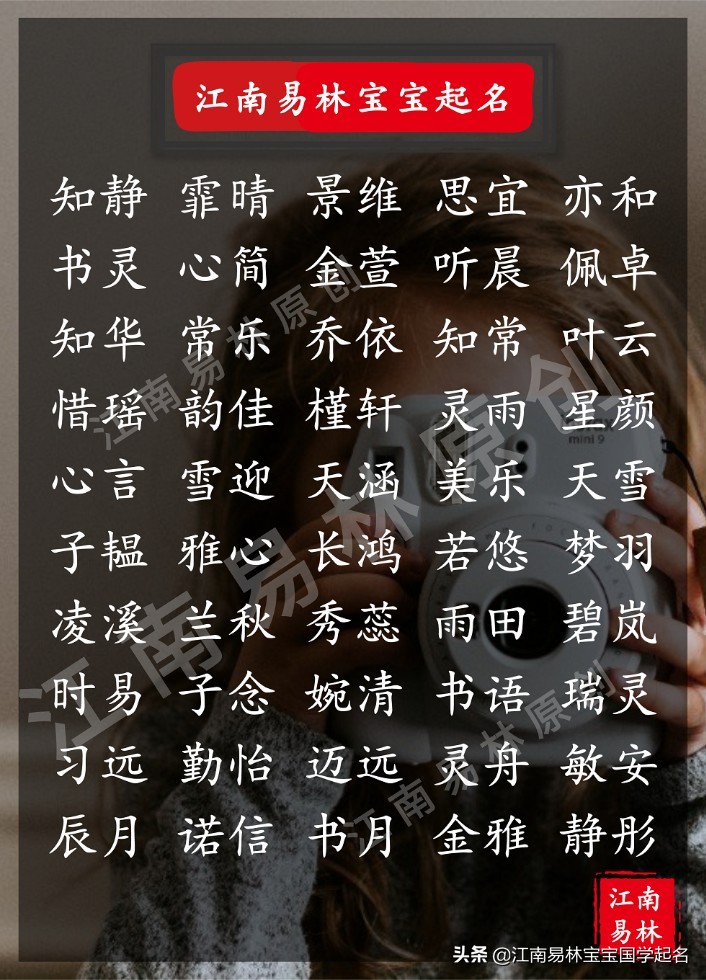 江南易林宝宝起名
知静 霏晴 景维 思宜 亦和
书灵 心简 金萱 听晨 佩卓
知华 常乐 乔依 知常 叶云
惜瑶 韵佳 槿轩 灵雨 星颜
心言 雪迎 天涵 美乐 天雪
子韫 雅心 长鸿 若悠 梦羽
凌溪 兰秋 秀蕊 雨田 碧岚
时易 子念 婉清 书语 瑞灵
习远 勤怡 迈远 灵舟 敏安
辰月 诺信 书月 金雅 静彤
江南易林原创
江南易林原创
江南易林原创
mini 9
江南
易林
头条 @江南易林宝宝国学起名